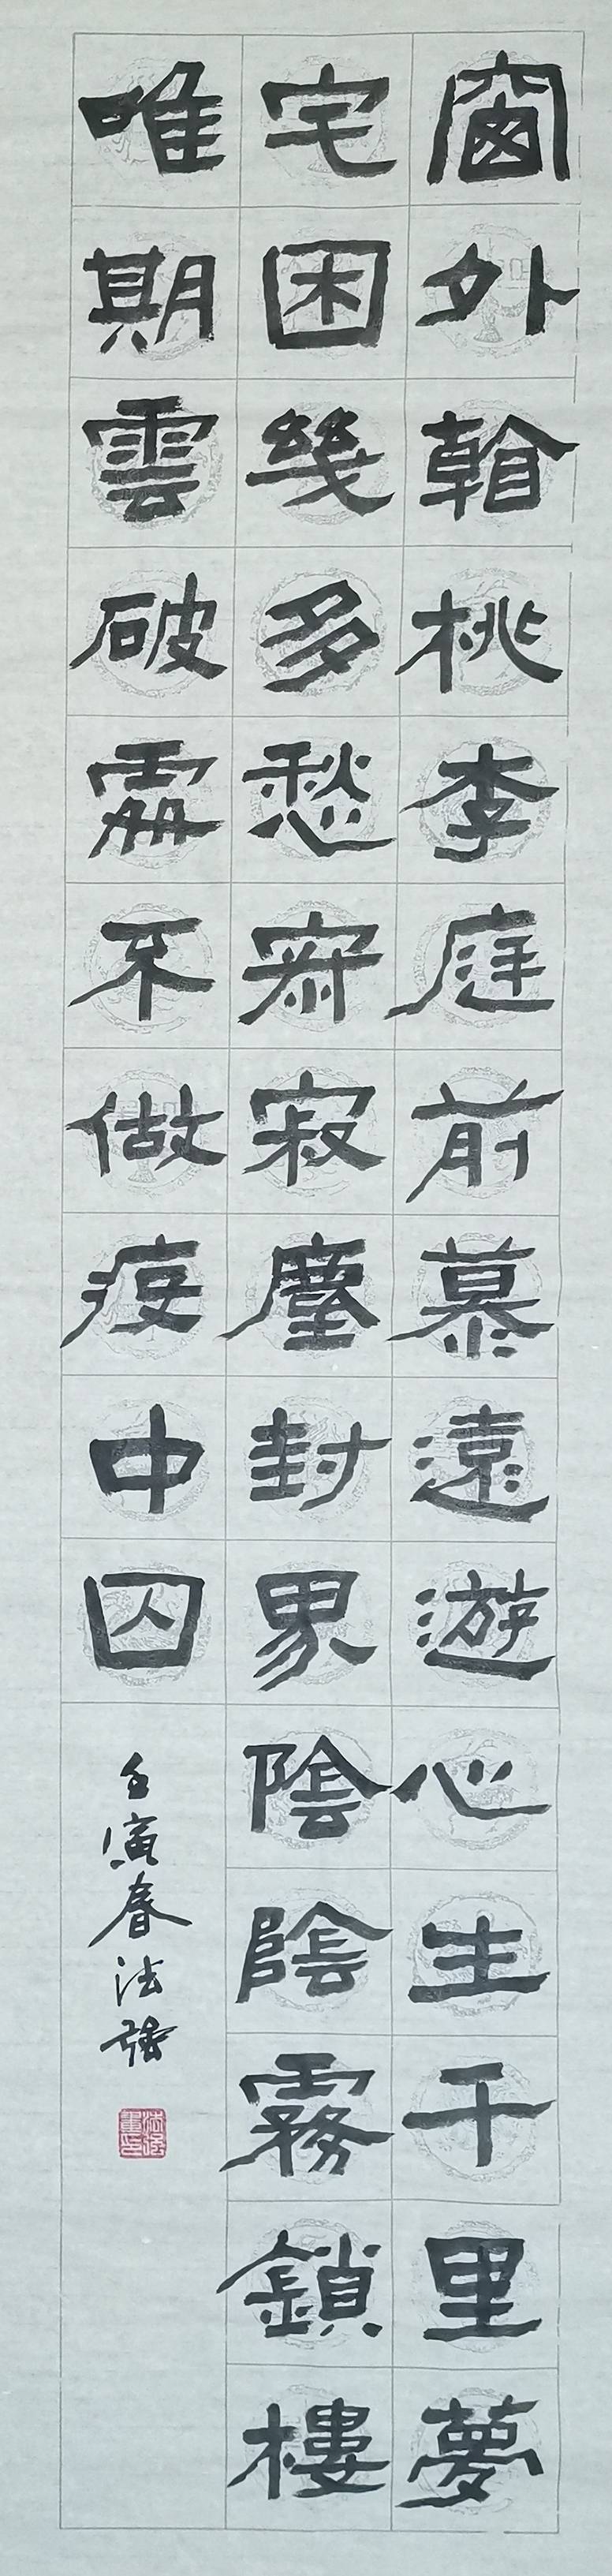 窗外看桃李庭前慕遠遊心生千里夢
宅困幾多愁寂寂塵封界陰陰霧鎖樓
唯期雲破處不做疫中囚
壬寅春法強